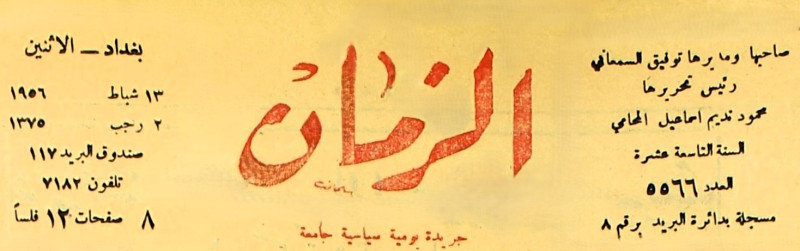 صاحبها ومديرها توفيق السمعاني
رئيس تحريرها
محمود نديم اسماعيل المحامي
السنة التاسعة عشرة
العدد ٥٥٦٦
مسجلة بدائرة البريد برقم ٨
الزمان
جريدة يومية سياسية جامعة
بغداد - الاثنين
١٣ شباط ١٩٥٦
٢ رجب ١٣٧٥
صندوق البريد ١١٧
تلفون ٧١٨٢
٨ صفحات ١٢ فلساً